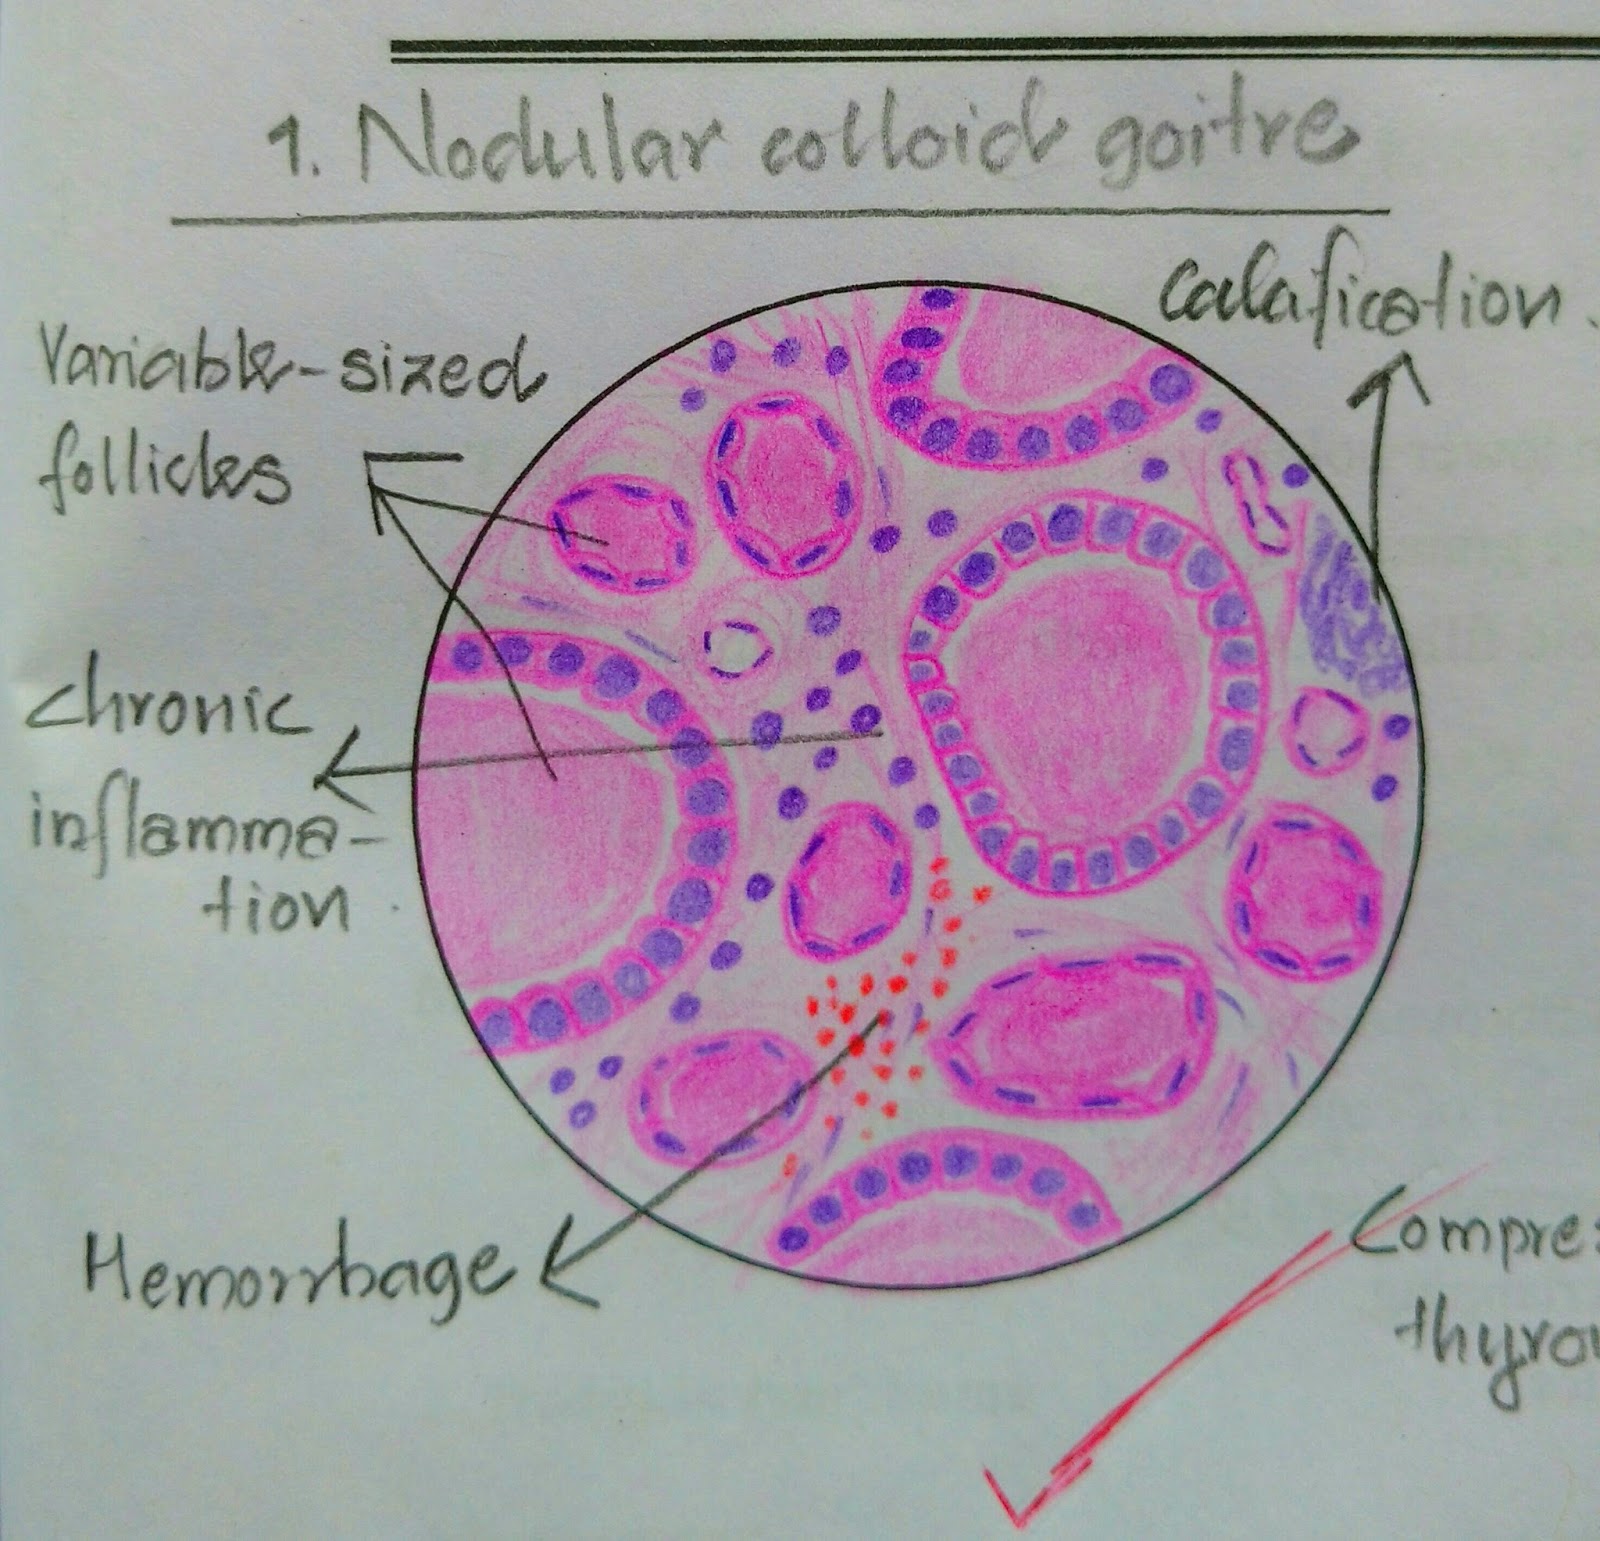 1. Nodular colloid goitre
Calafication.
Variable-sized
follicles
Chronic
inflamma-
tion.
Hemorrhage
Compre
thyro